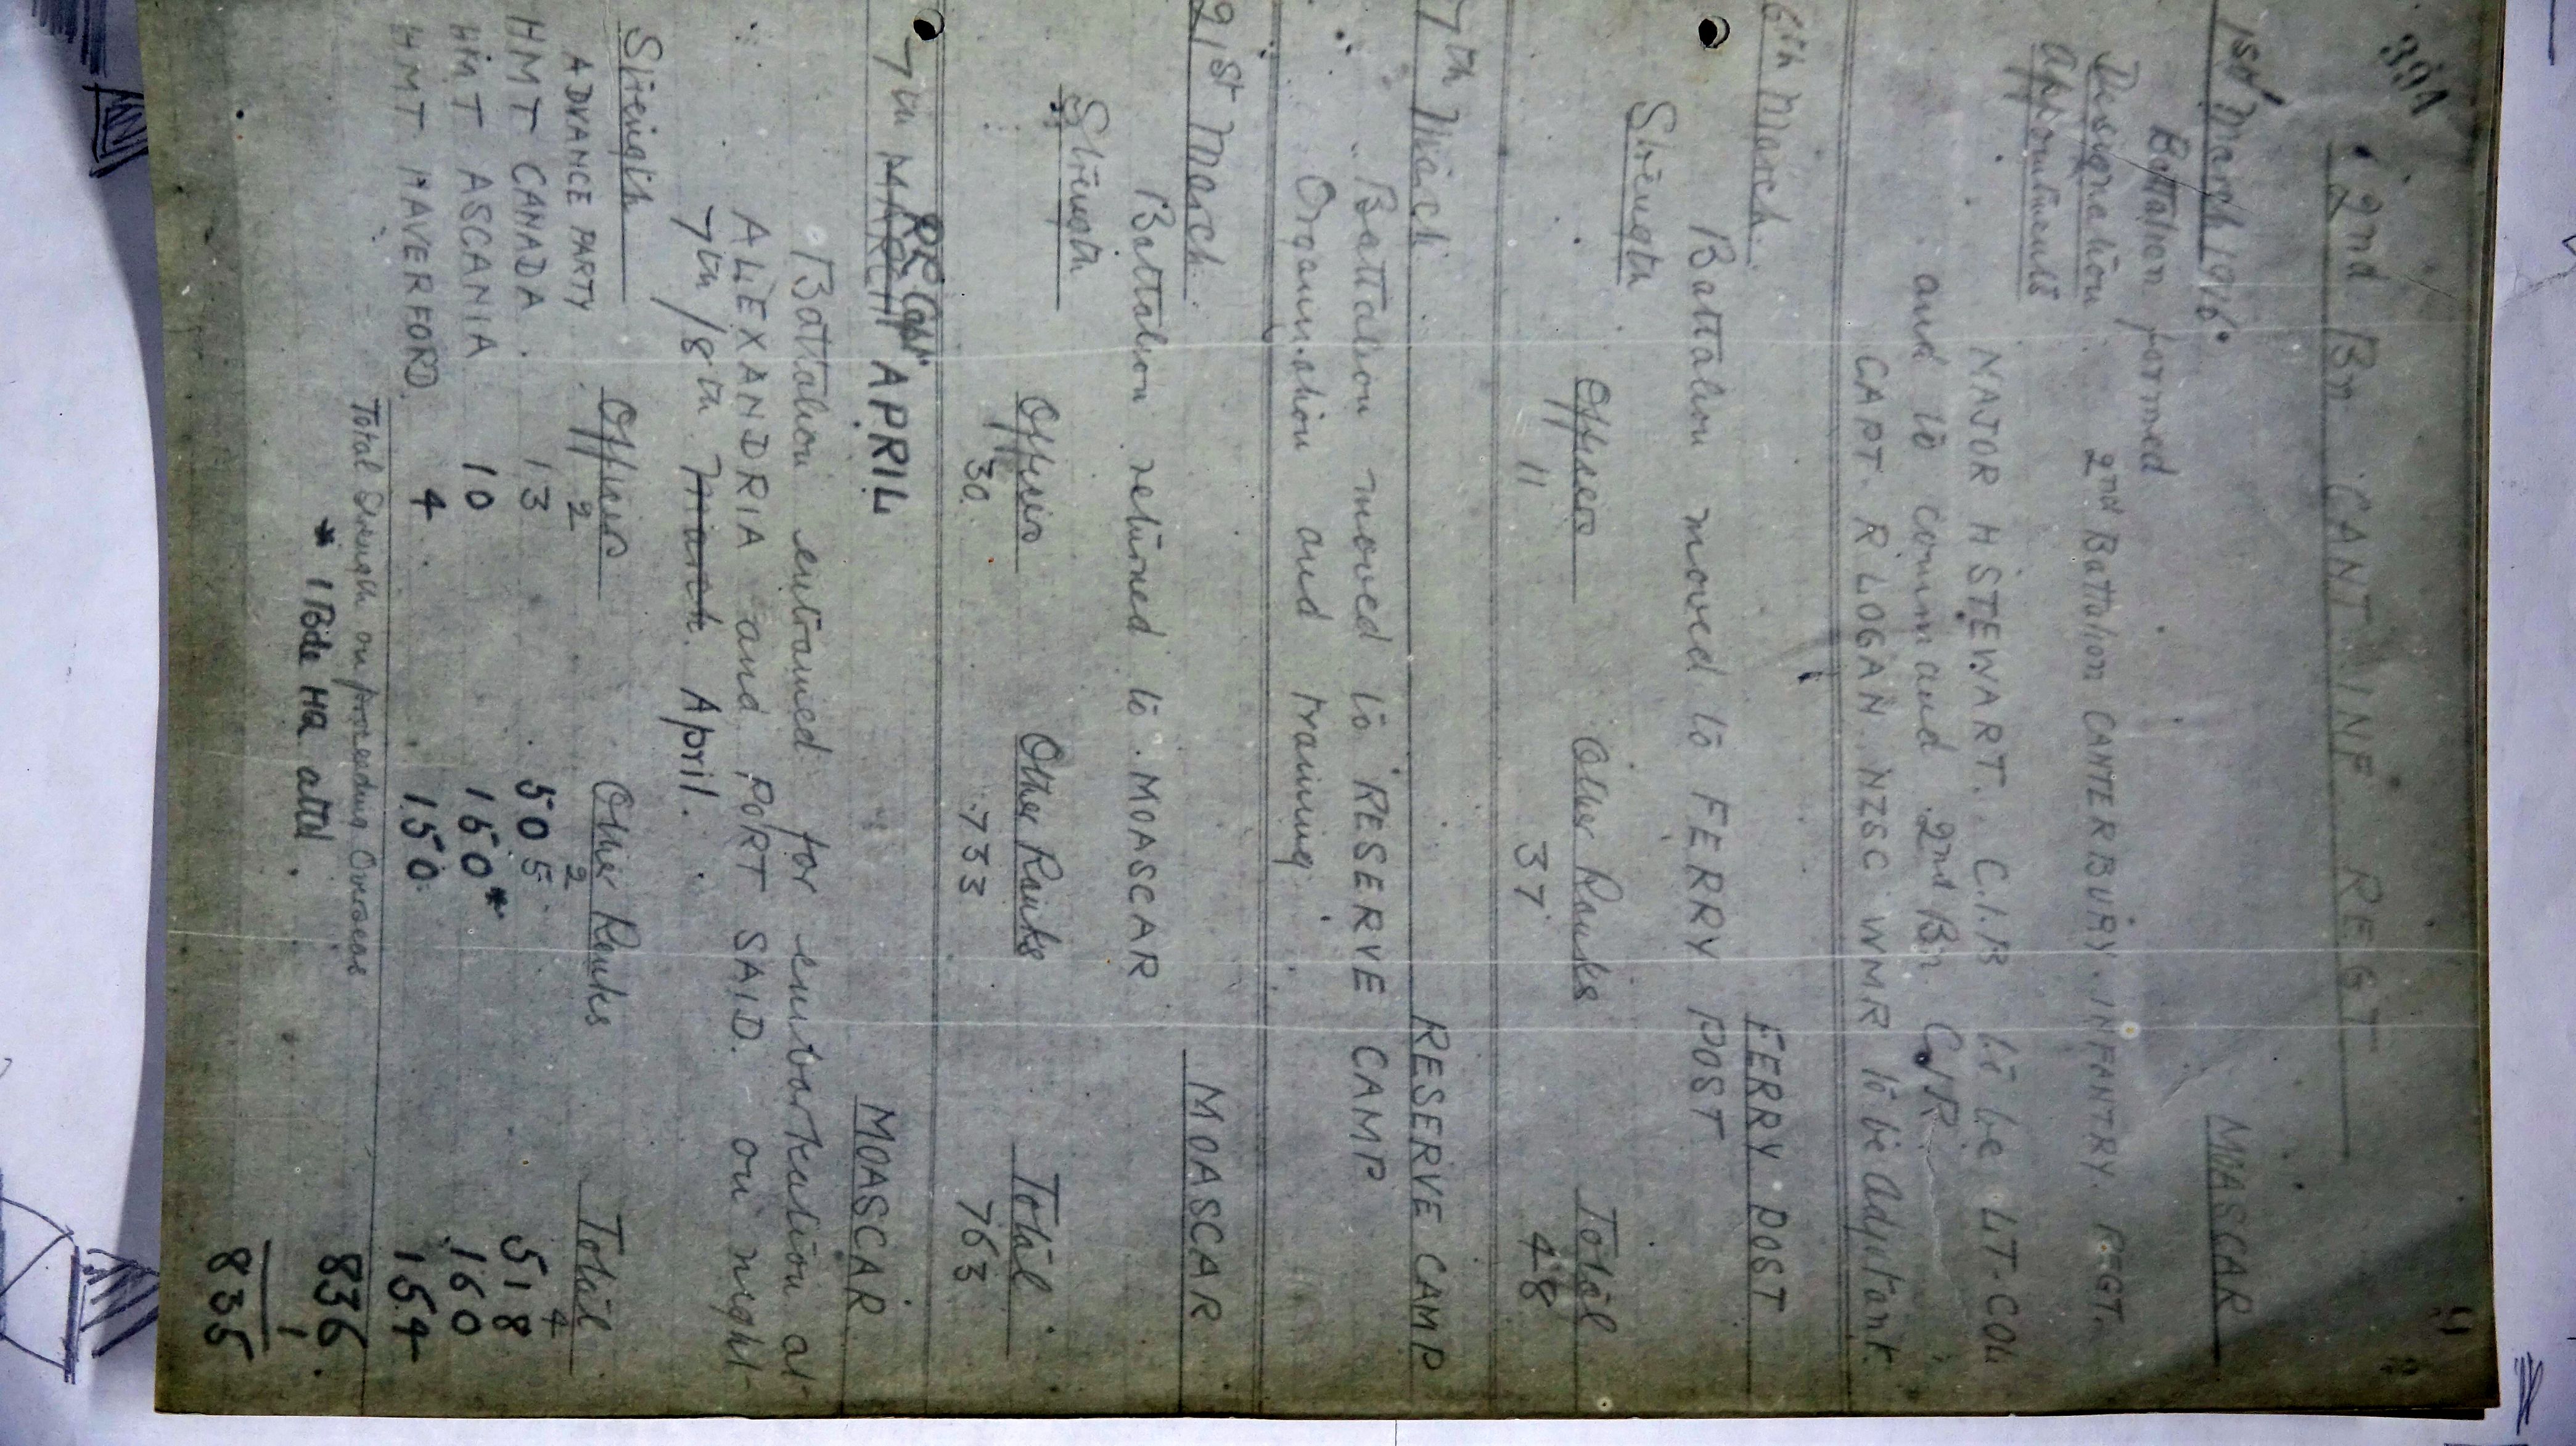 2nd Bn CANT. INF REGT
1st March 1916 MOASCAR
Battalion formed
Designation 2nd Battalion CANTERBURY INFANTRY REGT.
Appointments
MAJOR H STEWART. C.I.B to be LT-COL
and to command 2nd Bn
CAPT. R LOGAN NZSC WMR to be Adjutant.
6th March. FERRY POST
Battalion moved to FERRY POST
Strength Officers Other Ranks Total
11 37 48
7th March RESERVE CAMP
Battalion moved to RESERVE CAMP
Organisation and training
21st March. MOASCAR
Battalion returned to MOASCAR
Strength Officers Other Ranks Total
30 733 763
7th MARCH APRIL MOASCAR
Battalion entrained for embarkation at
ALEXANDRIA and PORT SAID. on night
7th/8th March. April.
Strength Officers Other Ranks Total
ADVANCE PARTY 2 2 4
HMT CANADA 13 505 518
HMT ASCANIA 10 150* 160
HMT HAVERFORD. 4 150 154
Total Strength on proceeding Overseas 836
* 1 Bde HQ attd. 1
835